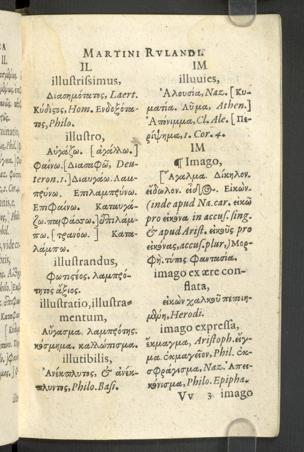 MARTINI RVLANDI.
IL
illustrissimus,
Διασημότατος, Laert.
Κύδιςος, Hom. Ενδοξότα-
τος, Philo.
illustro,
Αὐγάζω. [ἀγάλλω.]
Φαίνω. [Διασαφῶ, Deu-
teron. 1.] Διαυγάω. Λαμ-
πρύνω. Επιλαμπρύνω.
Επιφαίνω. Καταυγά-
ζω.
λάμπω.
illustrandus,
Φωτιςέος. λαμπρό-
τητος ἄξιος.
illustratio, illustra-
mentum,
Αὔγασμα. λαμπρότης.
κόσμημα. καλλώπισμα.
illutibilis,
Ἀνέκπλυτος, & ἀνέκ-
πλυντος, Philo. Basi.
IM
illuuies,
Ἀλουσία, Naz. [Κυ-
ματία. Λῦμα. Athen.]
Ἀπόνιμμα, Cl. Ale. [Πε-
ρίψημα, 1. Cor. 4.
IM
¶ Imago,
[Ἄγαλμα. Δίκηλον.
εἴδωλον. Εἰκών.
(inde apud Na. car. εἰκὼ
pro εἰκόνα in accus. sing.
& apud Arist. εἰκοῦς pro
εἰκόνας, accus. plur.) Μορ-
φή. τύπος. Φαντασία.
imago ex ære con-
flata,
εἰκὼν χαλκοῦ πεποιη-
μένη, Herodi.
imago expressa,
ἔκμαγμα, Aristoph.
ἐκμαγεῖον, Phil. ἐκ-
σφράγισμα, Naz. Ἀπει-
κόνισμα, Philo. Epipha.
Vv 3 imago